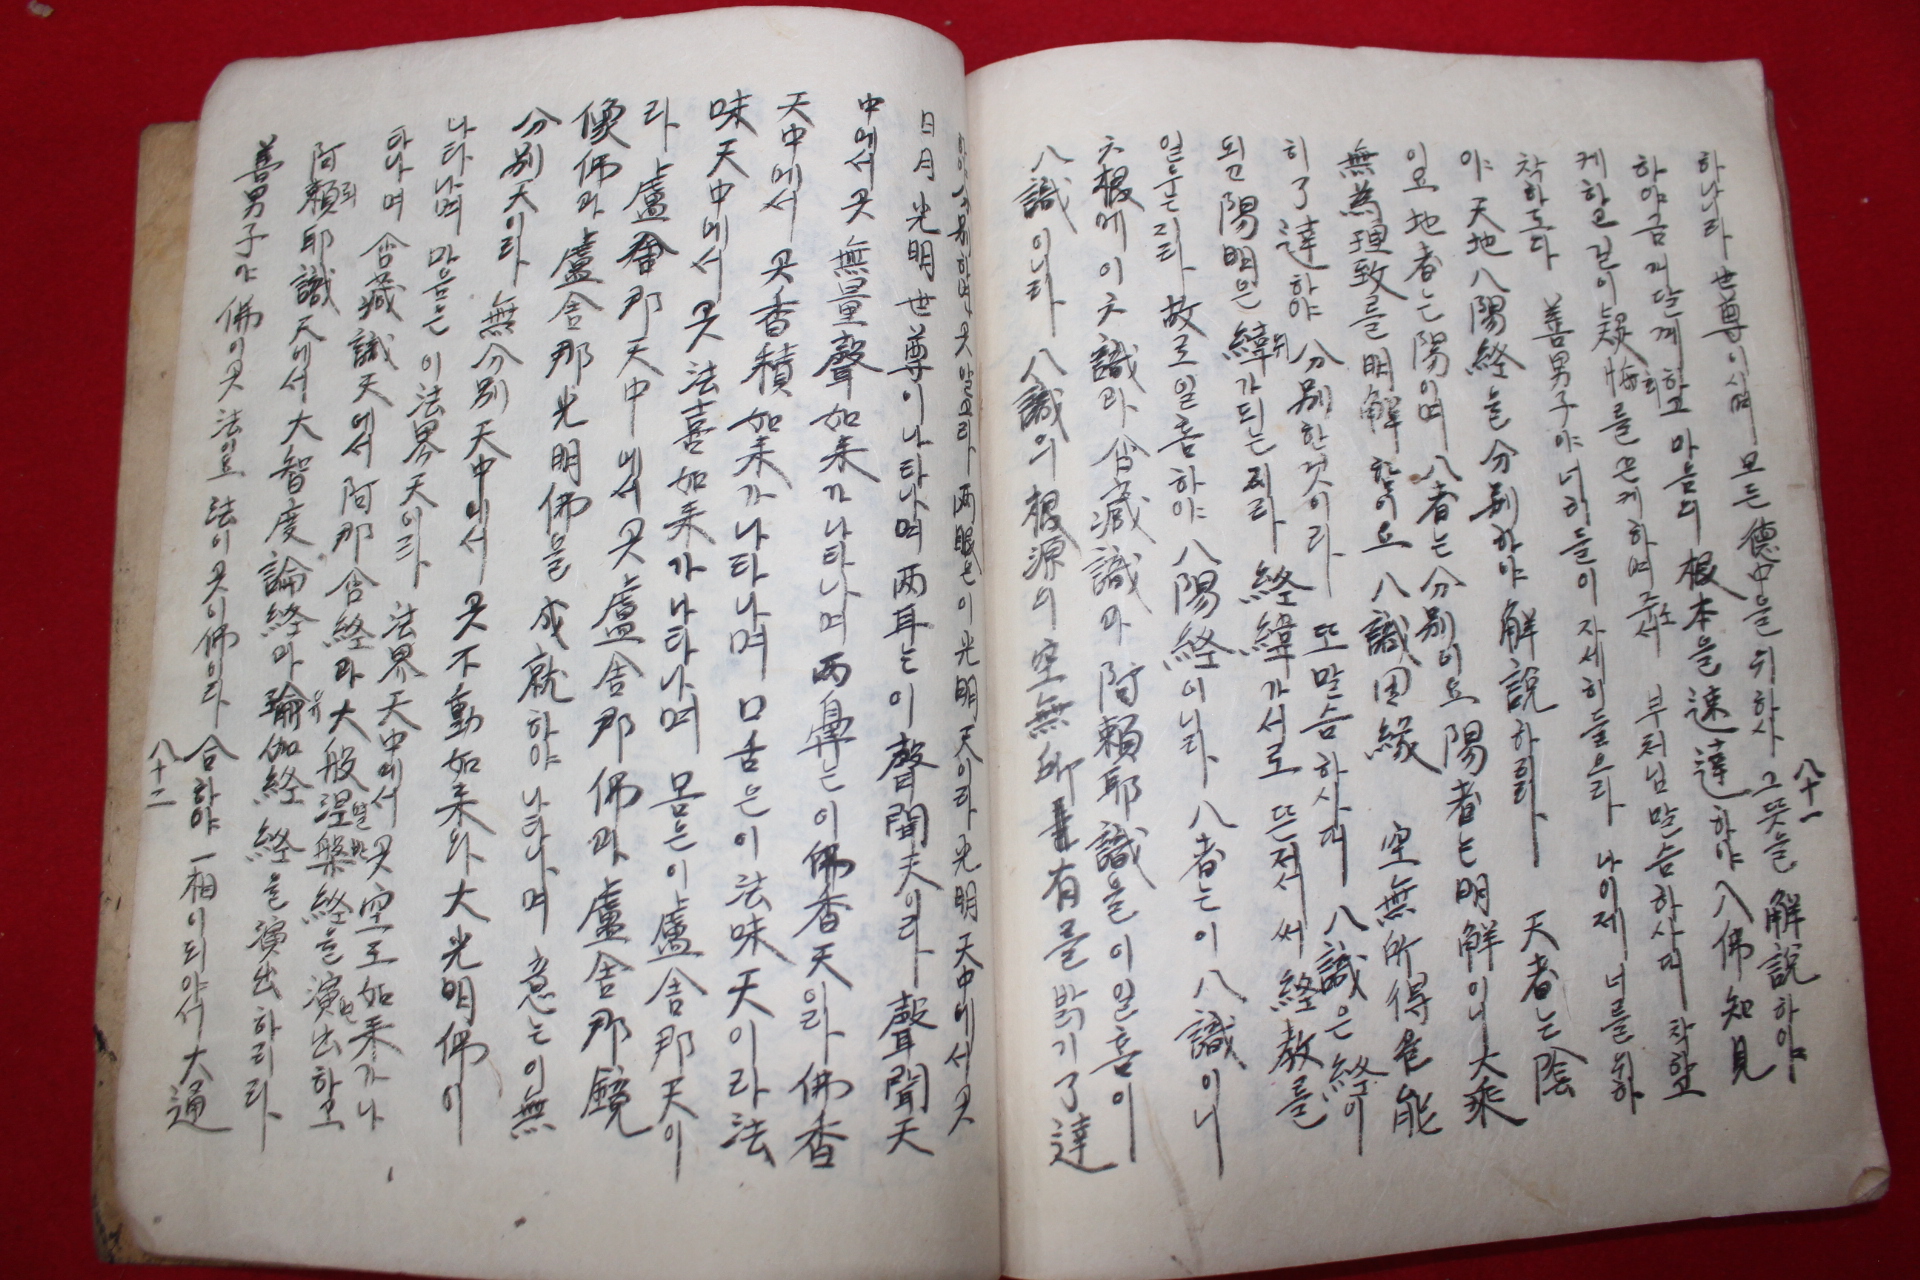 八十一
하나라 世尊이시여 모든 德中을 위하사 그뜻을 解說하야
하야금 깨달께하고 마음의 根本을 速達하야 入佛知見
케하고 길이 疑悔를 끈케하여주소서 부처님 말슴하사대 착하고
착하도다 善男子야 너히들이 자세히 들으라 나이제 너를위하
야 天地八陽経을 分別하야 解說하리라 天者는 陰
이요 地者는 陽이며 八者는 分別이요 陽者는 明解이니 大乘
無為理致를 明解함이요 八識因緣 空無所得을 能
히 了達하야 分別한것이라 또말슴하사대 八識은 経이
되고 陽明은 緯가되는지라 経緯가서로 뜨젓써 経教를
일운지라 故로 일홈하야 八陽経이니라 八者는 이 八識이니
六根에 이 六識과 含藏識과 阿賴耶識을 이 일홈이
八識이니라 八識의 根源의 空無所有를 밝기 了達
하야 分別하면 곳 알고라 兩眼은 이 光明天이라 光明天中에서 곳
日月光明世尊이 나타나며 両耳는 이 聲聞天이라 聲聞天
中에서 곳 無量聲如来가 나타나며 両鼻는 이 佛香天이라 佛香
天中에서 곳 香積如来가 나타나며 口舌은 이 法味天이라 法
味天中에서 곳 法喜如来가 나타나며 몸은 이 盧舍那天이
라 盧舍那天中에서 곳 盧舍那佛과 盧舍那鏡
像佛과 盧舍那光明佛을 成就하야 나타나며 意는 이 無
分別天이라 無分別天中에서 곳 不動如来와 大光明佛이
나타나며 마음은 이 法界天이라 法界天中에서 곳 空王如来가 나
타나며 含藏識天에서 阿那含経과 大般涅槃経을 演出하고
阿賴耶識天에서 大智度論経과 瑜伽経 経을 演出하리라
善男子야 佛이곳法이요 法이곳이佛이라 合하야 一相이되야서 大通
八十二